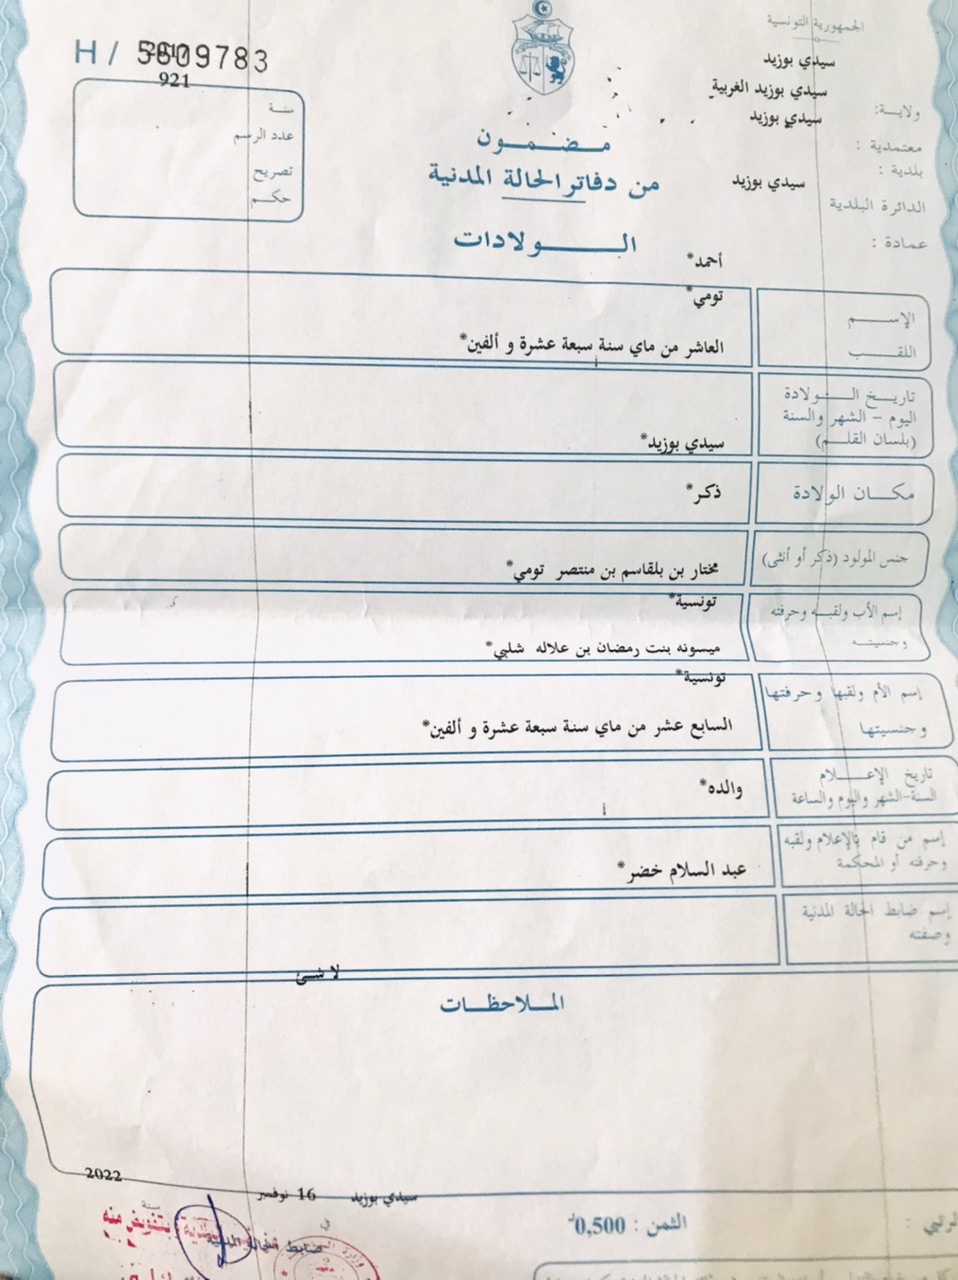 الجمهورية التونسية
H / 5609783
2017
921
سنة
عدد الرسم
تصريح
حكم
سيدي بوزيد
سيدي بوزيد الغربية
سيدي بوزيد
سيدي بوزيد
ولاية:
معتمدية :
بلدية :
الدائرة البلدية
عمادة :
مضمون
من دفاتر الحالة المدنية
الولادات
أحمد*
تومي*
الإسم
اللقب
العاشر من ماي سنة سبعة عشرة و ألفين*
تاريخ الولادة
اليوم - الشهر والسنة
(بلسان القلم)
سيدي بوزيد*
مكان الولادة
ذكر*
جنس المولود (ذكر أو أنثى)
مختار بن بلقاسم بن منتصر تومي*
تونسية*
إسم الأب ولقبه وحرفته
وجنسيته
ميسونه بنت رمضان بن علاله شلبي*
تونسية*
إسم الأم ولقبها وحرفتها
وجنسيتها
السابع عشر من ماي سنة سبعة عشرة و ألفين*
تاريخ الإعلام
السنة-الشهر واليوم والساعة
والده*
إسم من قام بالإعلام ولقبه
وحرفته أو المحكمة
عبد السلام خضر*
إسم ضابط الحالة المدنية
وصفته
لا شئ
الملاحظات
سيدي بوزيد 16 نوفمبر 2022
في
سنة
ضابط الحالة المدنية
بتفويض منه
الثمن : 0,500د